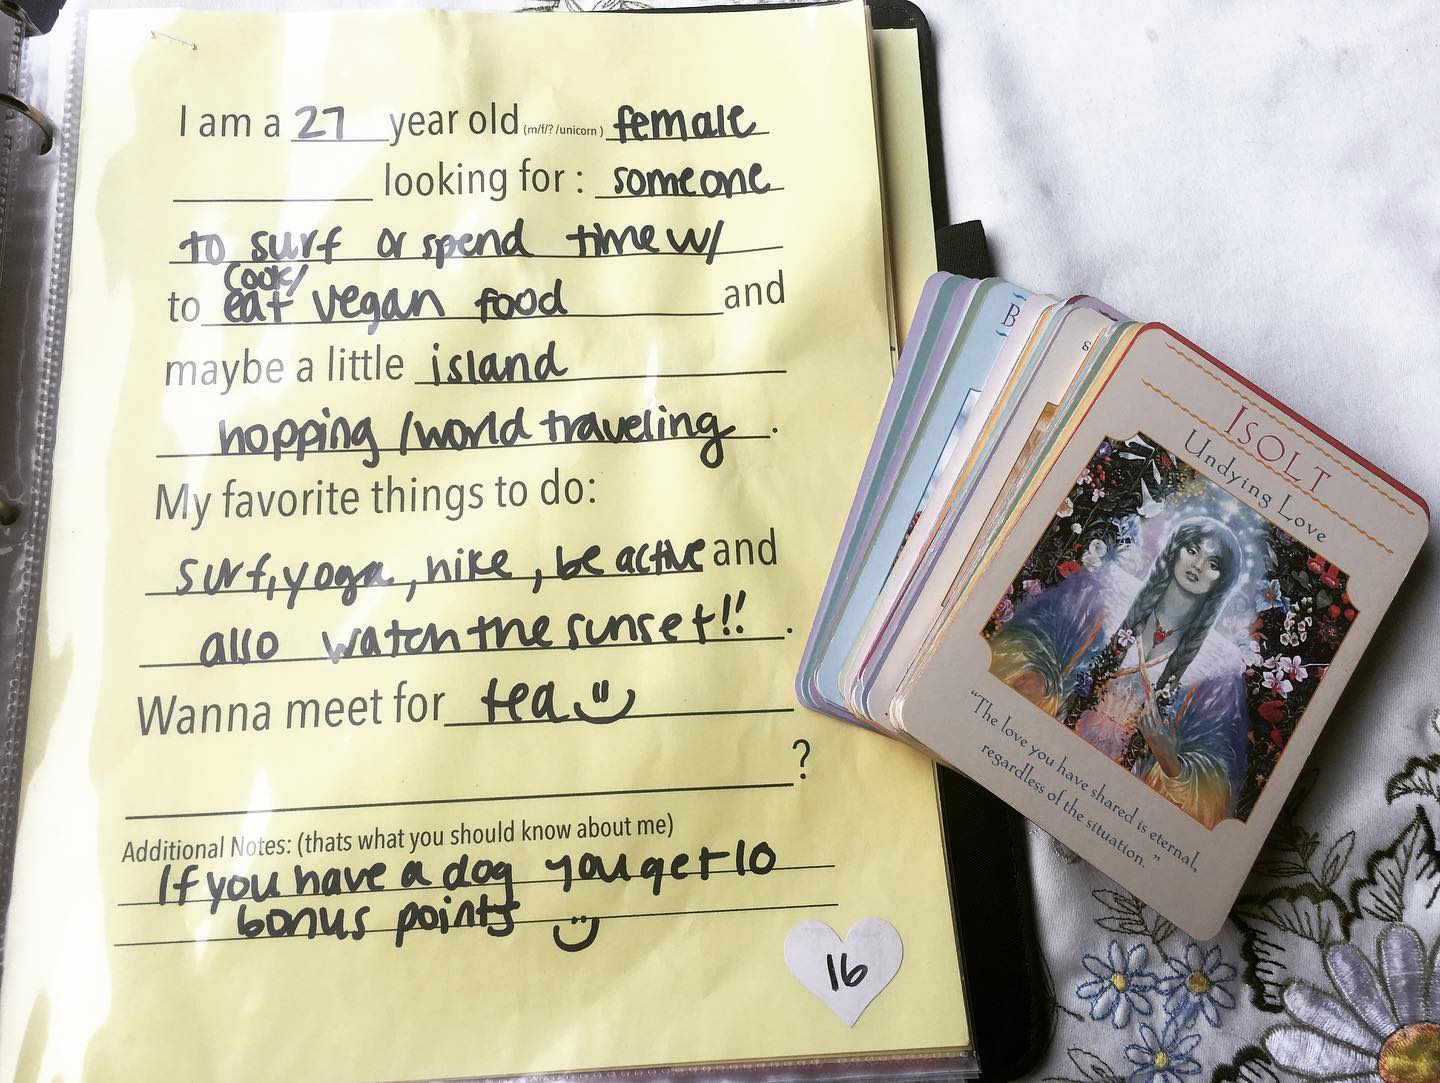 I am a 27 year old (m/f/? /unicorn) female
looking for : someone
to surf or spend time w/
cook/
to eat vegan food and
maybe a little island
hopping / world traveling .
My favorite things to do:
surf, yoga, hike, be active and
also watch the sunset!! .
Wanna meet for tea
?
Additional Notes: (thats what you should know about me)
If you have a dog you get 10
bonus points
16
B
s
ISOLT
Undying Love
"The love you have shared is eternal,
regardless of the situation."